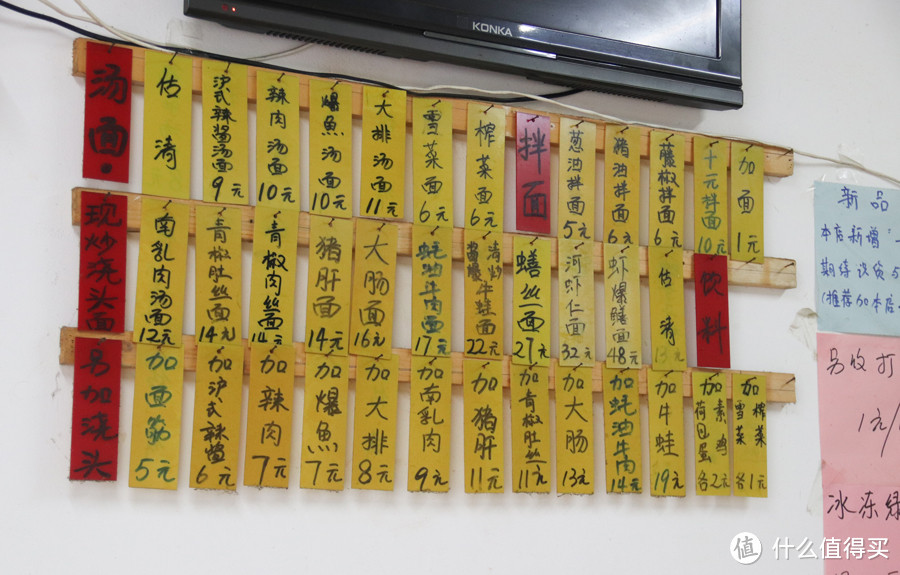 KONKA
汤面
估清
沪式辣酱汤面 9元
辣肉汤面 10元
爆魚汤面 10元
大排汤面 11元
雪菜面 6元
榨菜面 6元
拌面
葱油拌面 5元
猪油拌面 6元
藤椒拌面 6元
十元拌面 10元
加面 1元
现炒浇头面
南乳肉汤面 12元
青椒肚丝面 14元
青椒肉丝面 14元
猪肝面 14元
大肠面 16元
蚝油牛肉面 17元
酱爆 清炒 牛蛙面 22元
鳝丝面 27元
河虾仁面 32元
虾爆鳝面 48元
估清
饮料
另加浇头
加面筋 5元
加沪式辣酱 6元
加辣肉 7元
加爆魚 7元
加大排 8元
加南乳肉 9元
加猪肝 11元
加青椒肚丝 11元
加大肠 13元
加蚝油牛肉 14元
加牛蛙 19元
加荷包蛋 素鸡 各2元
加雪菜 榨菜 各1元
新品
本店新增
期待
(推荐加本店
另收打
1元/
冰冻绿
值 什么值得买